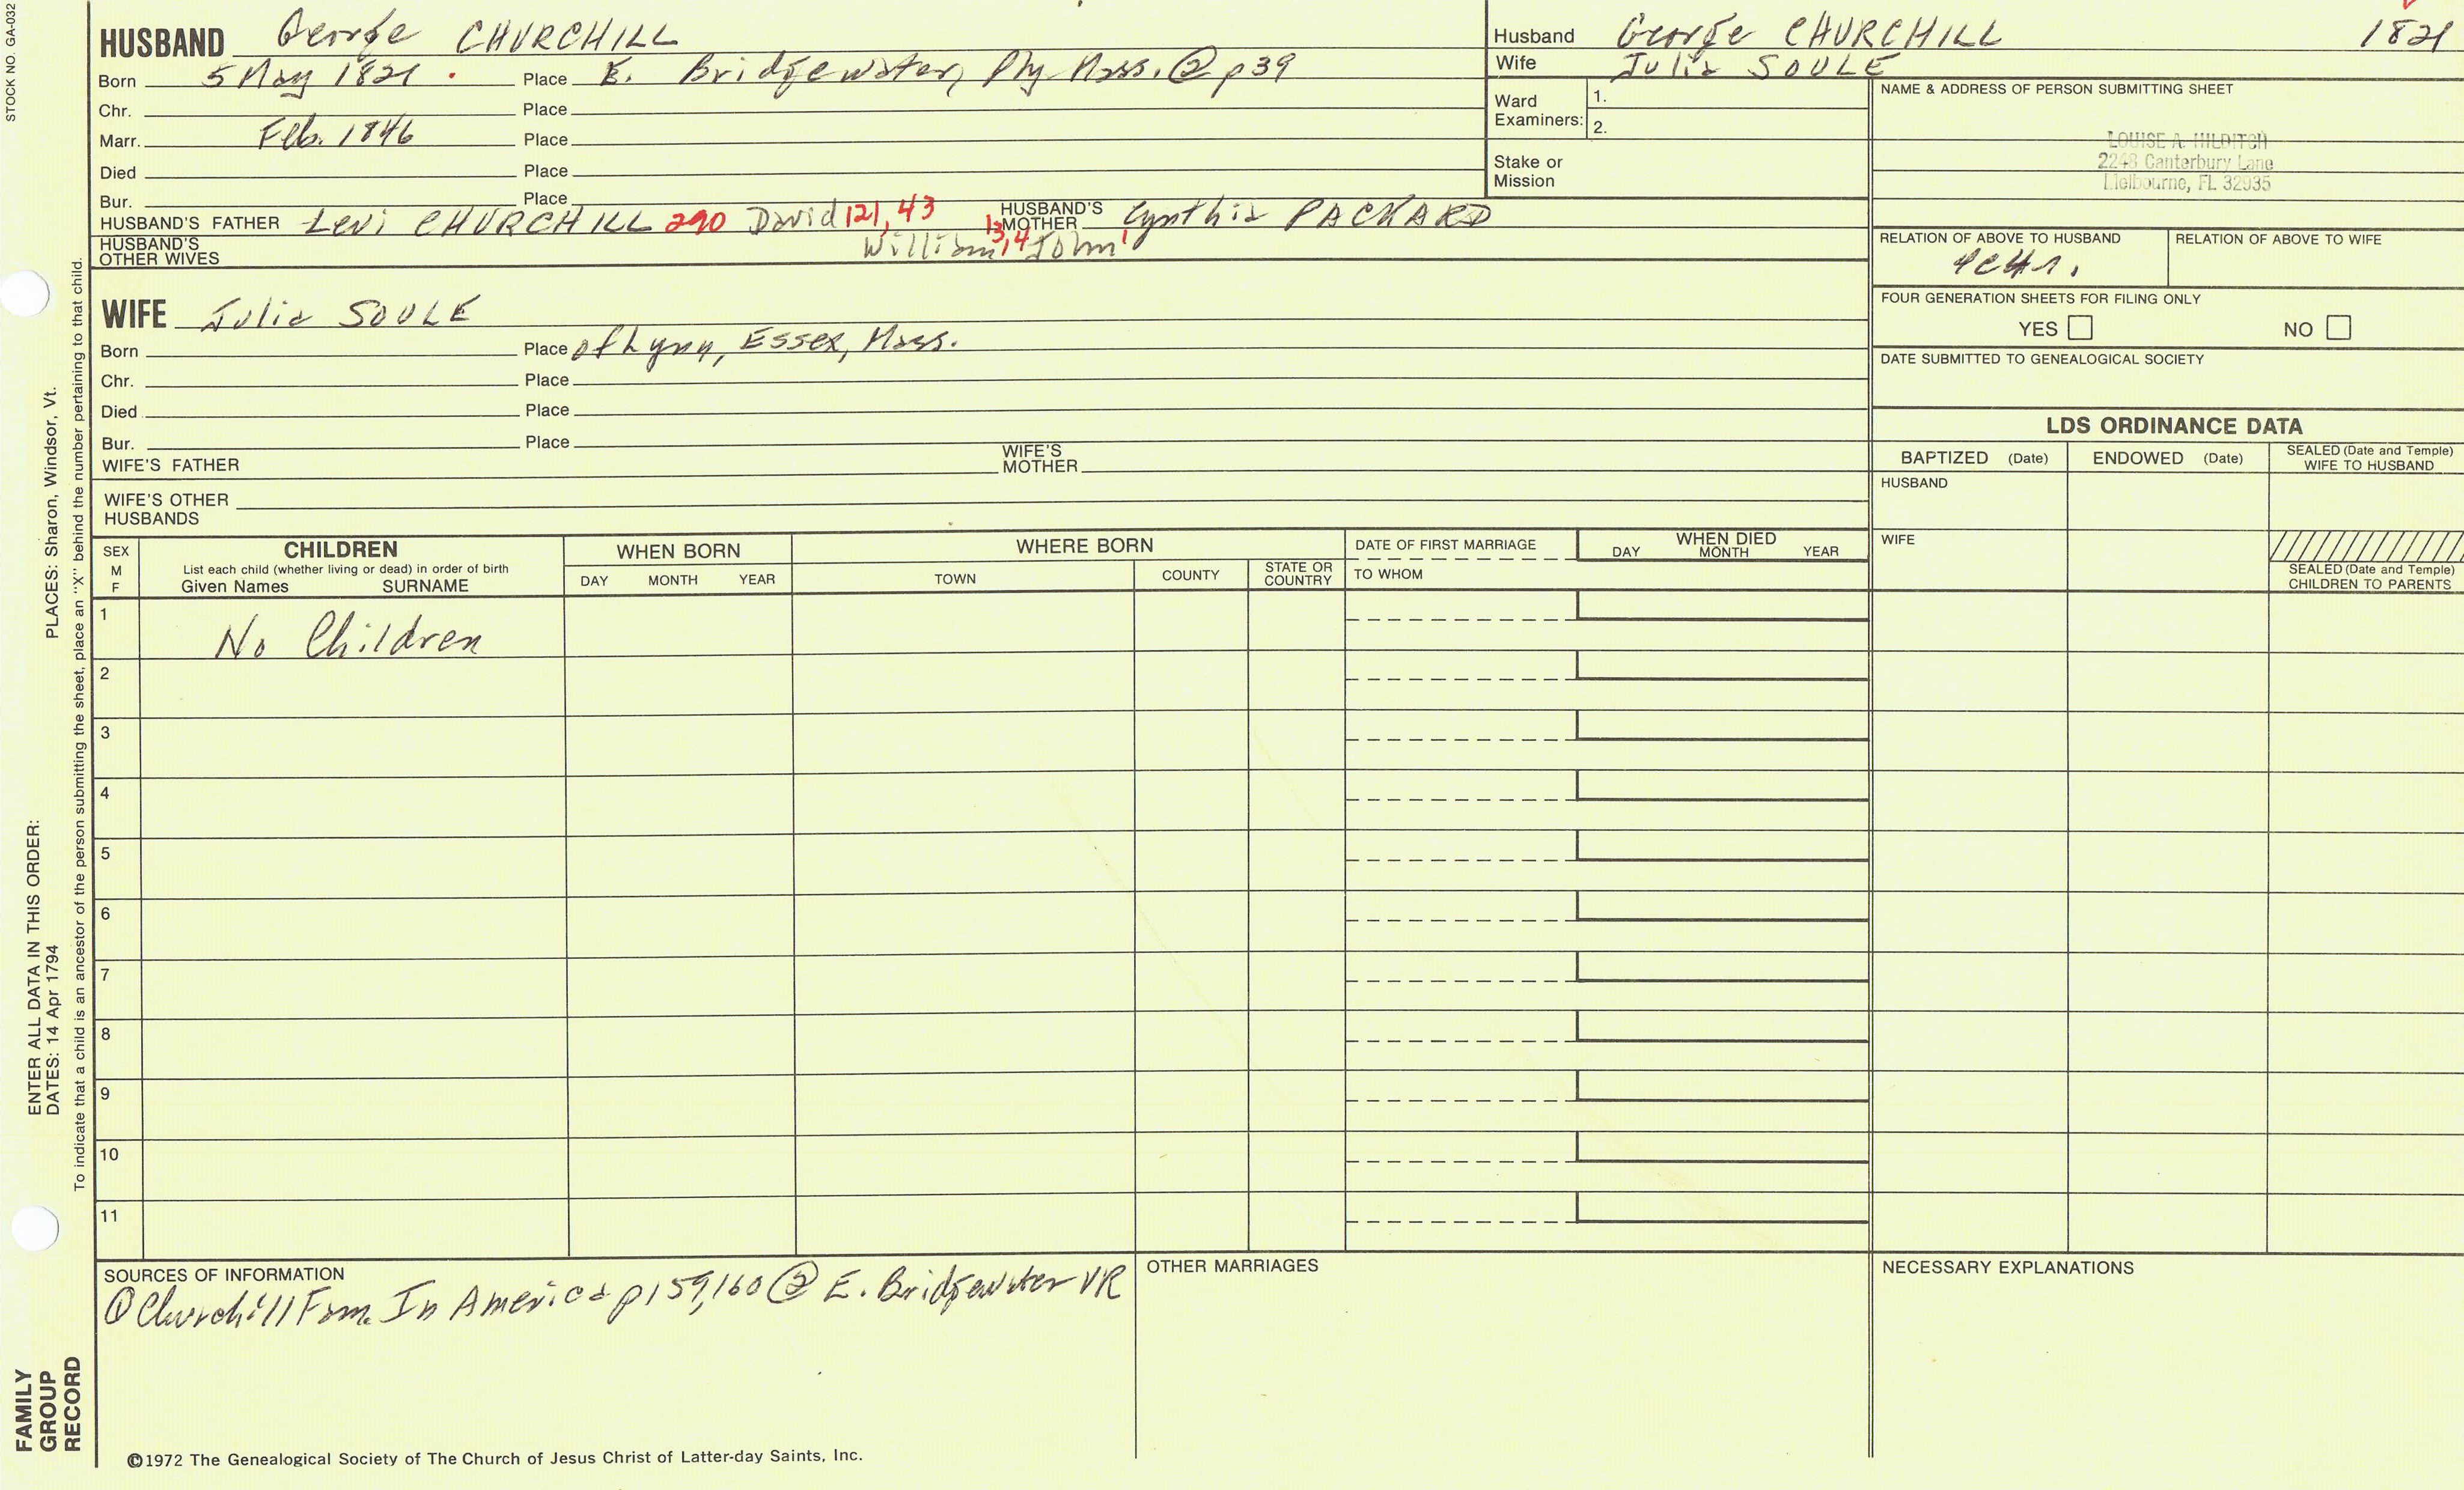 STOCK NO. GA-032
HUSBAND George CHURCHILL
Born 5 May 1821 Place E. Bridgewater, Ply Mass. ② p39
Chr. Place
Marr. Feb. 1846 Place
Died Place
Bur. Place
HUSBAND'S FATHER Levi CHURCHILL 290 David 121, 43 HUSBAND'S MOTHER Cynthia PACKARD
HUSBAND'S OTHER WIVES William 13, 4 John 1
Husband George CHURCHILL 1821
Wife Julia SOULE
Ward Examiners: 1.
2.
Stake or Mission
NAME & ADDRESS OF PERSON SUBMITTING SHEET
LOUISE A. HILDITCH
2248 Canterbury Lane
Melbourne, FL 32935
RELATION OF ABOVE TO HUSBAND
RELATION OF ABOVE TO WIFE
FOUR GENERATION SHEETS FOR FILING ONLY
YES NO
DATE SUBMITTED TO GENEALOGICAL SOCIETY
WIFE Julia SOULE
Born Place of Lynn, Essex, Mass.
Chr. Place
Died Place
Bur. Place
WIFE'S FATHER WIFE'S MOTHER
WIFE'S OTHER HUSBANDS
LDS ORDINANCE DATA
BAPTIZED (Date) ENDOWED (Date) SEALED (Date and Temple) WIFE TO HUSBAND
HUSBAND
WIFE
SEALED (Date and Temple) CHILDREN TO PARENTS
SEX M F
CHILDREN
List each child (whether living or dead) in order of birth
Given Names SURNAME
WHEN BORN
DAY MONTH YEAR
WHERE BORN
TOWN COUNTY STATE OR COUNTRY
DATE OF FIRST MARRIAGE
TO WHOM
WHEN DIED
DAY MONTH YEAR
1 No Children
2
3
4
5
6
7
8
9
10
11
SOURCES OF INFORMATION
① Churchill Fam. In America p159,160 ② E. Bridgewater VR
OTHER MARRIAGES
NECESSARY EXPLANATIONS
©1972 The Genealogical Society of The Church of Jesus Christ of Latter-day Saints, Inc.
FAMILY GROUP RECORD
ENTER ALL DATA IN THIS ORDER:
DATES: 14 Apr 1794 PLACES: Sharon, Windsor, Vt.
To indicate that a child is an ancestor of the person submitting the sheet, place an "X" behind the number pertaining to that child.